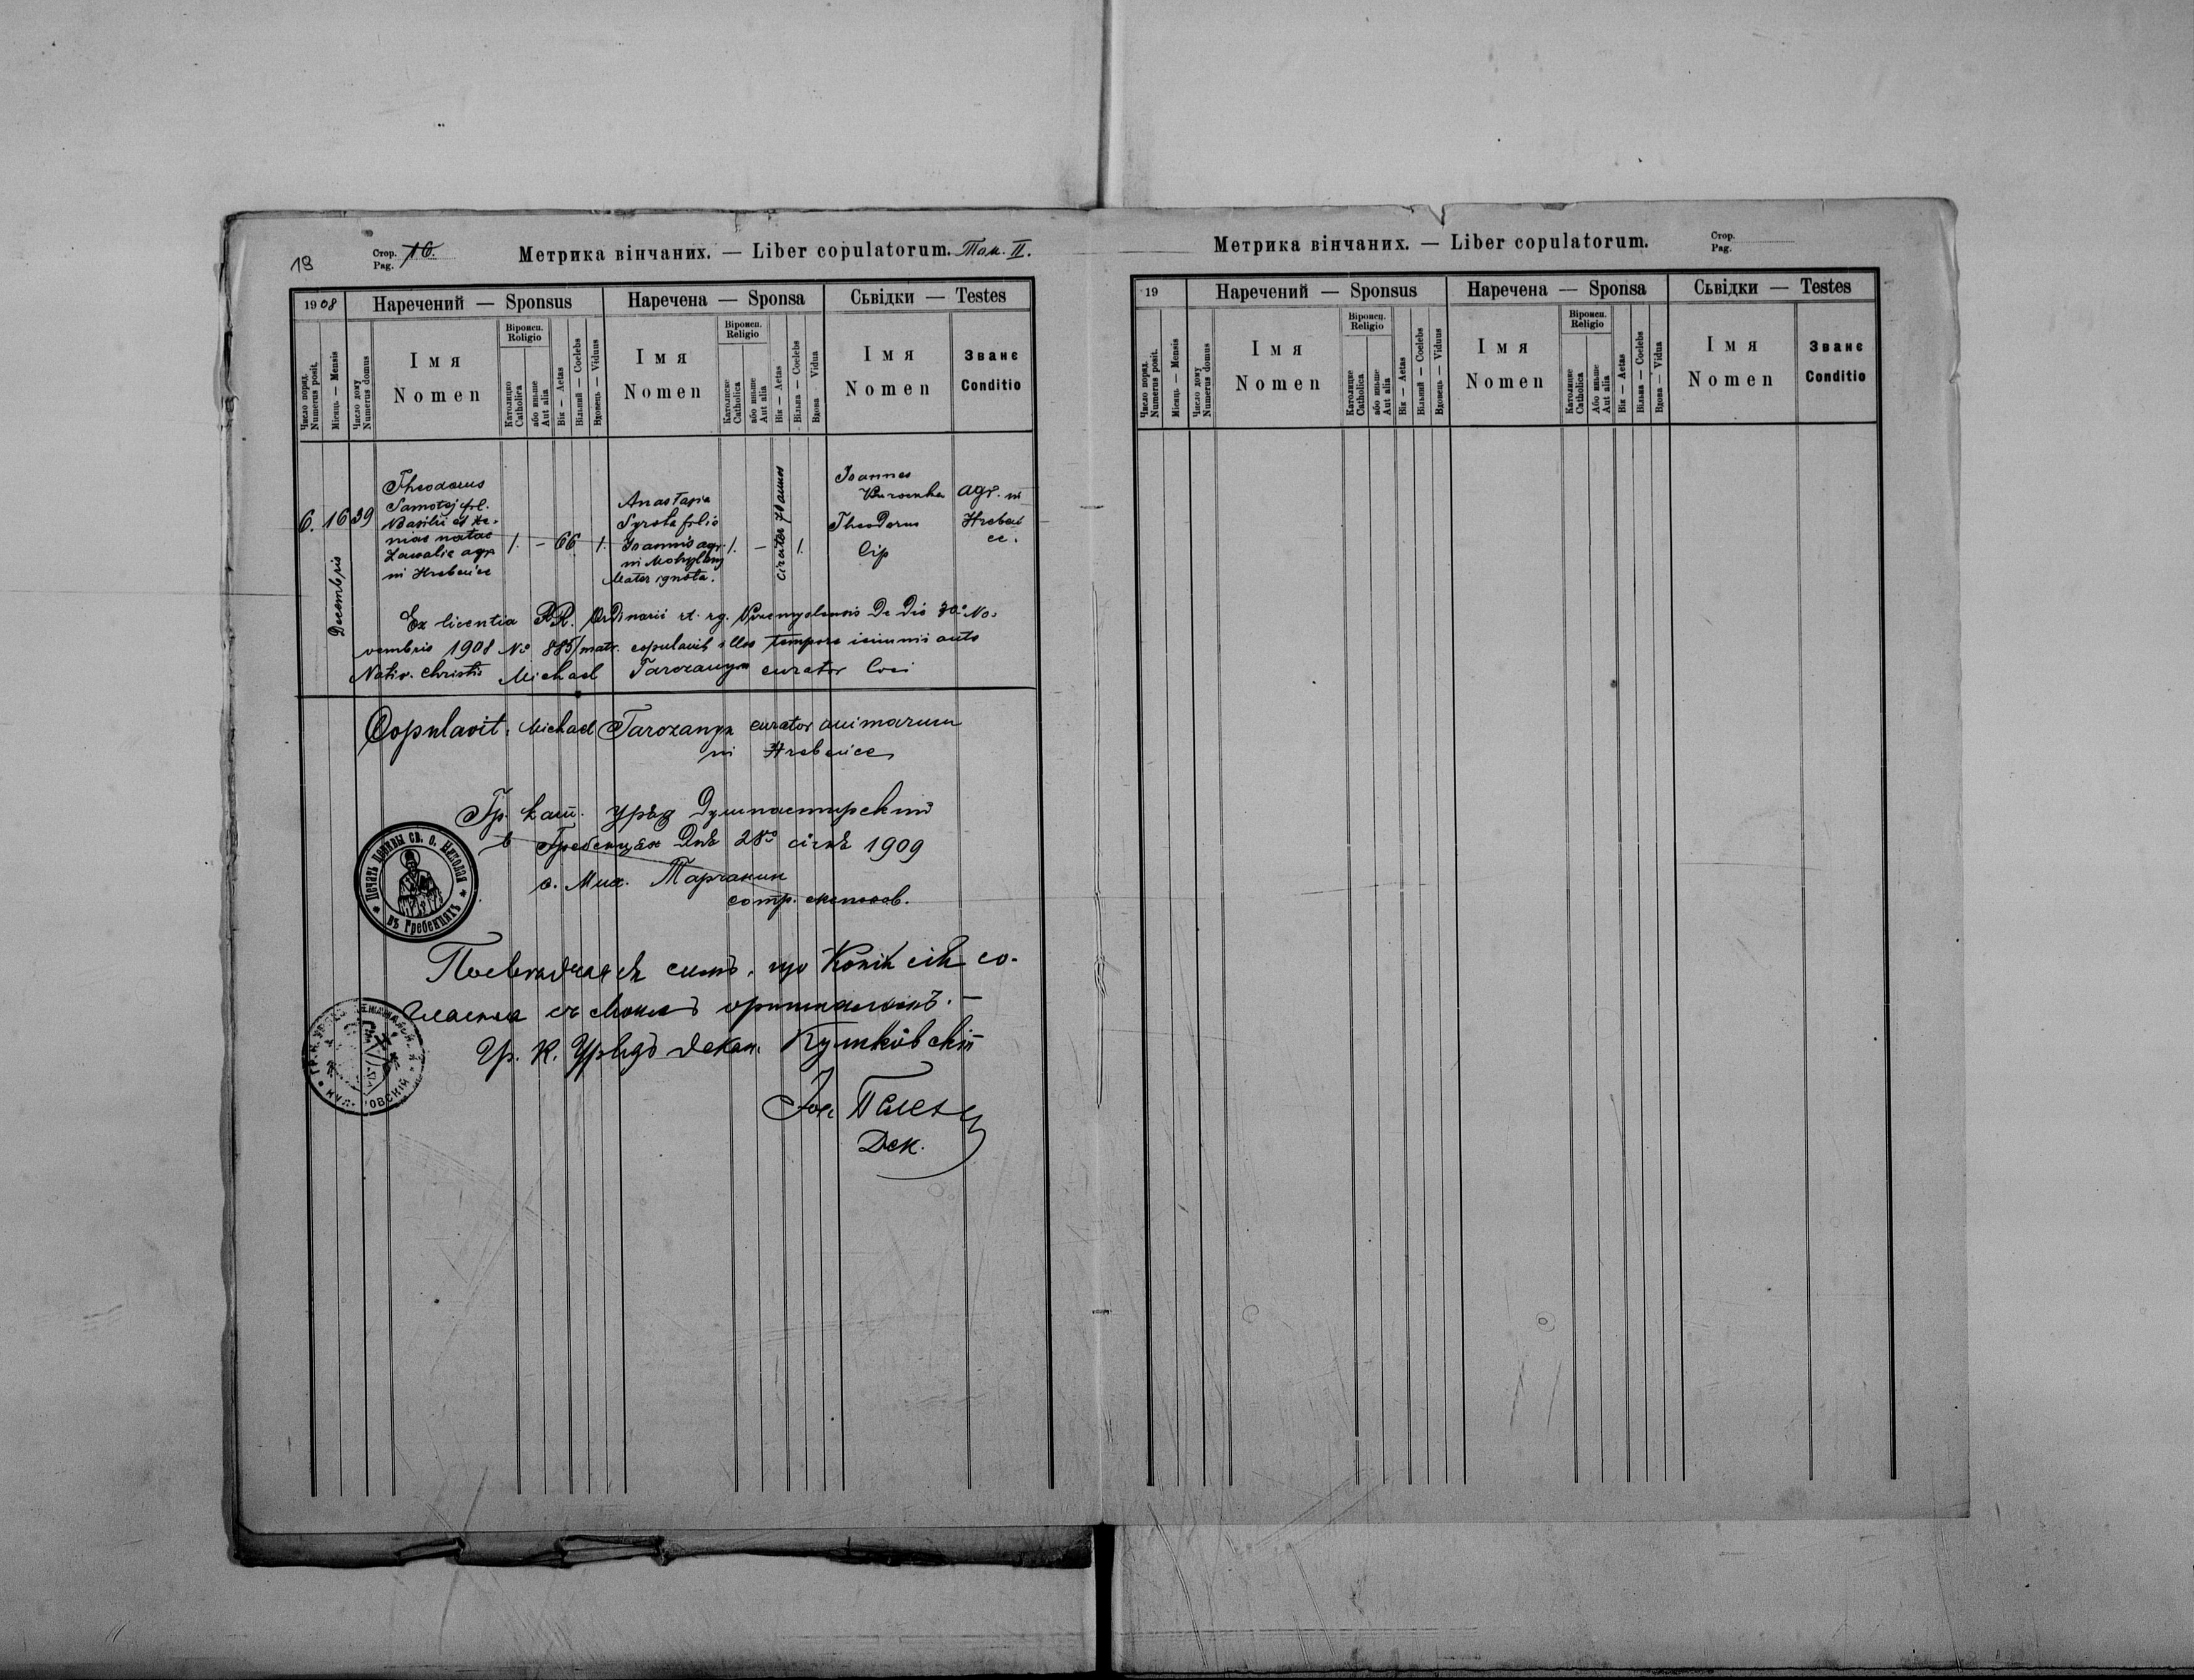 19
Стор. 10.
Pag.
Метрика вінчаних. — Liber copulatorum. Том. II.
1908
Наречений — Sponsus
Наречена — Sponsa
Сьвідки — Testes
Число поряд.
Numerus posit.
Місяць — Mensis
Число дому
Numerus domus
Імя
Nomen
Віроисп.
Religio
Католицке
Catholica
або иньше
Aut alia
Вік — Aetas
Вільний — Coelebs
Вдовець — Viduus
Імя
Nomen
Віроисп.
Religio
Католицке
Catholica
або иньше
Aut alia
Вік — Aetas
Вільна — Coelebs
Вдова — Vidua
Імя
Nomen
Званє
Conditio
6. 16 39
Decembris
Theodorus
Samotej fil.
Basilii et
niae natae
agr.
in Hrebeńce
1. — 66 1.
Anastasia
Syrota filia
Joannis agr.
in Mohylany
Mater ignota.
1. —
circiter 70 annos
1.
Joannes
Theodorus
Cip
agr. in
Hrebeń
ce.
Ex licentia RR. Ordinarii rt. rg. Premysliensis De Dio 30° No-
vembris 1908 No 885/matr. copulavit illos tempore ieiunii ante
Nativ. Christi Michael Tarczanyn curator loci
Copulavit: Michael Tarczanyn curator animarum
in Hrebeńce
Гр. кат. уряд Душпастирский
в Гребенцях Дня 28° січня 1909
о. Мих. Тарчанин
сотр.
Печать церквы св. о. Николая
въ Гребенцяхъ
Посвѣдчаєся симъ, що копія сія со-
гласна съ своимъ оригиналомъ. —
Гр. К. Урядъ декан. Куликôвскій
Дек.
Метрика вінчаних. — Liber copulatorum.
Стор.
Pag.
19
Наречений — Sponsus
Наречена — Sponsa
Сьвідки — Testes
Число поряд.
Numerus posit.
Місяць — Mensis
Число дому
Numerus domus
Імя
Nomen
Віроисп.
Religio
Католицке
Catholica
або иньше
Aut alia
Вік — Aetas
Вільний — Coelebs
Вдовець — Viduus
Імя
Nomen
Віроисп.
Religio
Католицке
Catholica
Або иньше
Aut alia
Вік — Aetas
Вільна — Coelebs
Вдова — Vidua
Імя
Nomen
Званє
Conditio